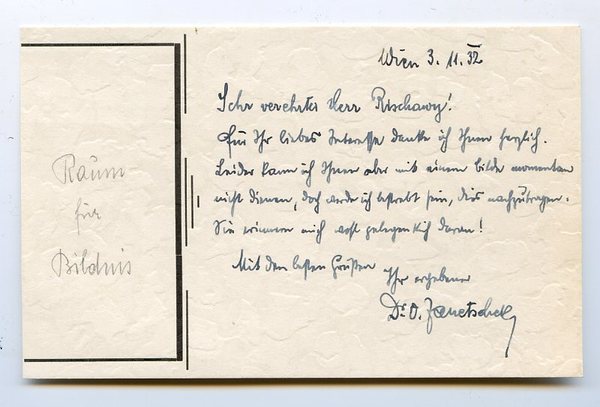 Raum
für
Bildnis
Wien 3. 11. 32
Sehr verehrter Herr Rischawy!
Für Ihr liebes Interesse danke ich Ihnen herzlich.
Leider kann ich Ihnen aber mit einem Bilde momentan
nicht dienen, doch werde ich bestrebt sein, dies nachzutragen.
Sie erinnern mich wohl gelegentlich daran!
Mit den besten Grüßen
Ihr ergebener
Dr. O. Janetschek